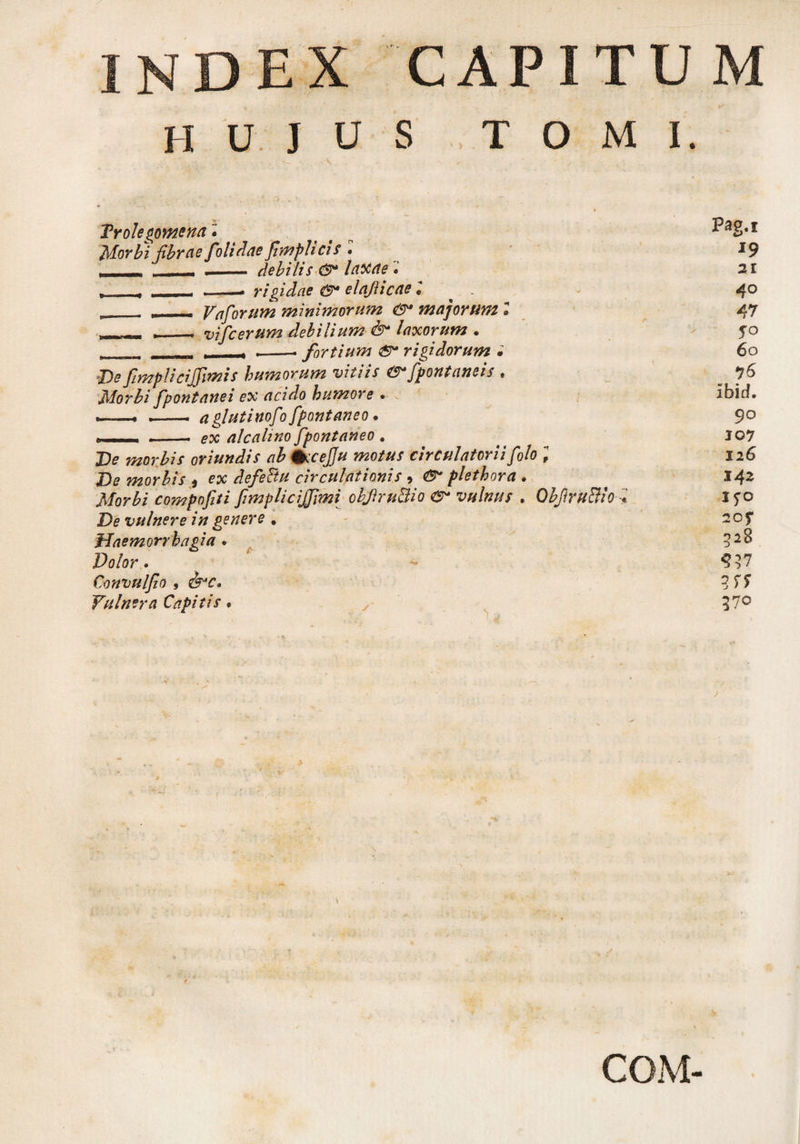 INDEX CAPITUM
HUJUS TOMI.
Prolegomena. Pag.1
Morbi fibrae solidae simplicis. 19
—— —— —— debilis & laxae. 21
—— —— —— rigidae & elasticae. 40
—— —— Vasorum minimorum & majorum. 47
—— —— viscerum debilium & laxorum. 50
—— —— —— —— fortium & rigidorum. 60
De simplicissimis humorum vitiis & spontaneis. 76
Morbi spontanei ex acido humore. ibid.
—— —— a glutinoso spontaneo. 90
—— —— ex alcalino spontaneo. 107
De morbis oriundis ab excessu motus circulatorii solo, 126
De morbis, ex defectu circulationis, & plethora. 142
Morbi compositi simplicissimi obstructio & vulnus. Obstructio. 150
De vulnere in genere. 205
Haemorrhagia. 328
Dolor. 337
Convulsio, &c. 355
Vulnera Capitis. 370
COM-